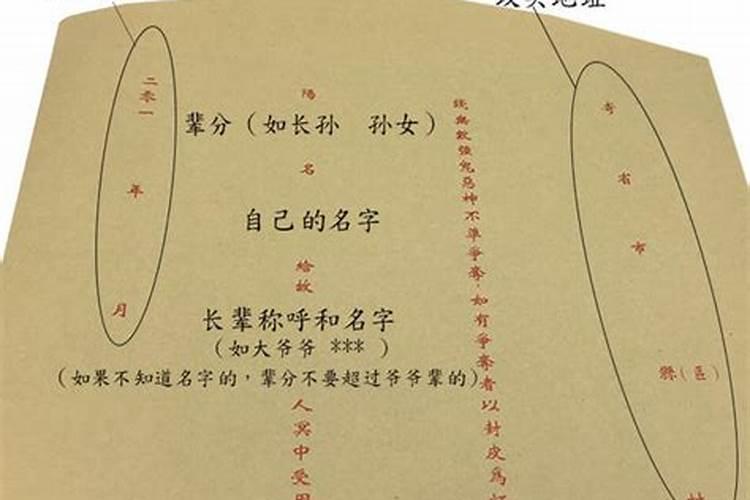 省市縣(區)
無数强鬼惡神不準爭奪，如有爭奪者以封皮爲
陽
辈分（如长孙 孙女）
名
自己的名字
給故
长辈称呼和名字
（如大爷爷 *** ）
（如果不知道名字的，辈分不要超过爷爷辈的）
人冥中受用
二零一年月